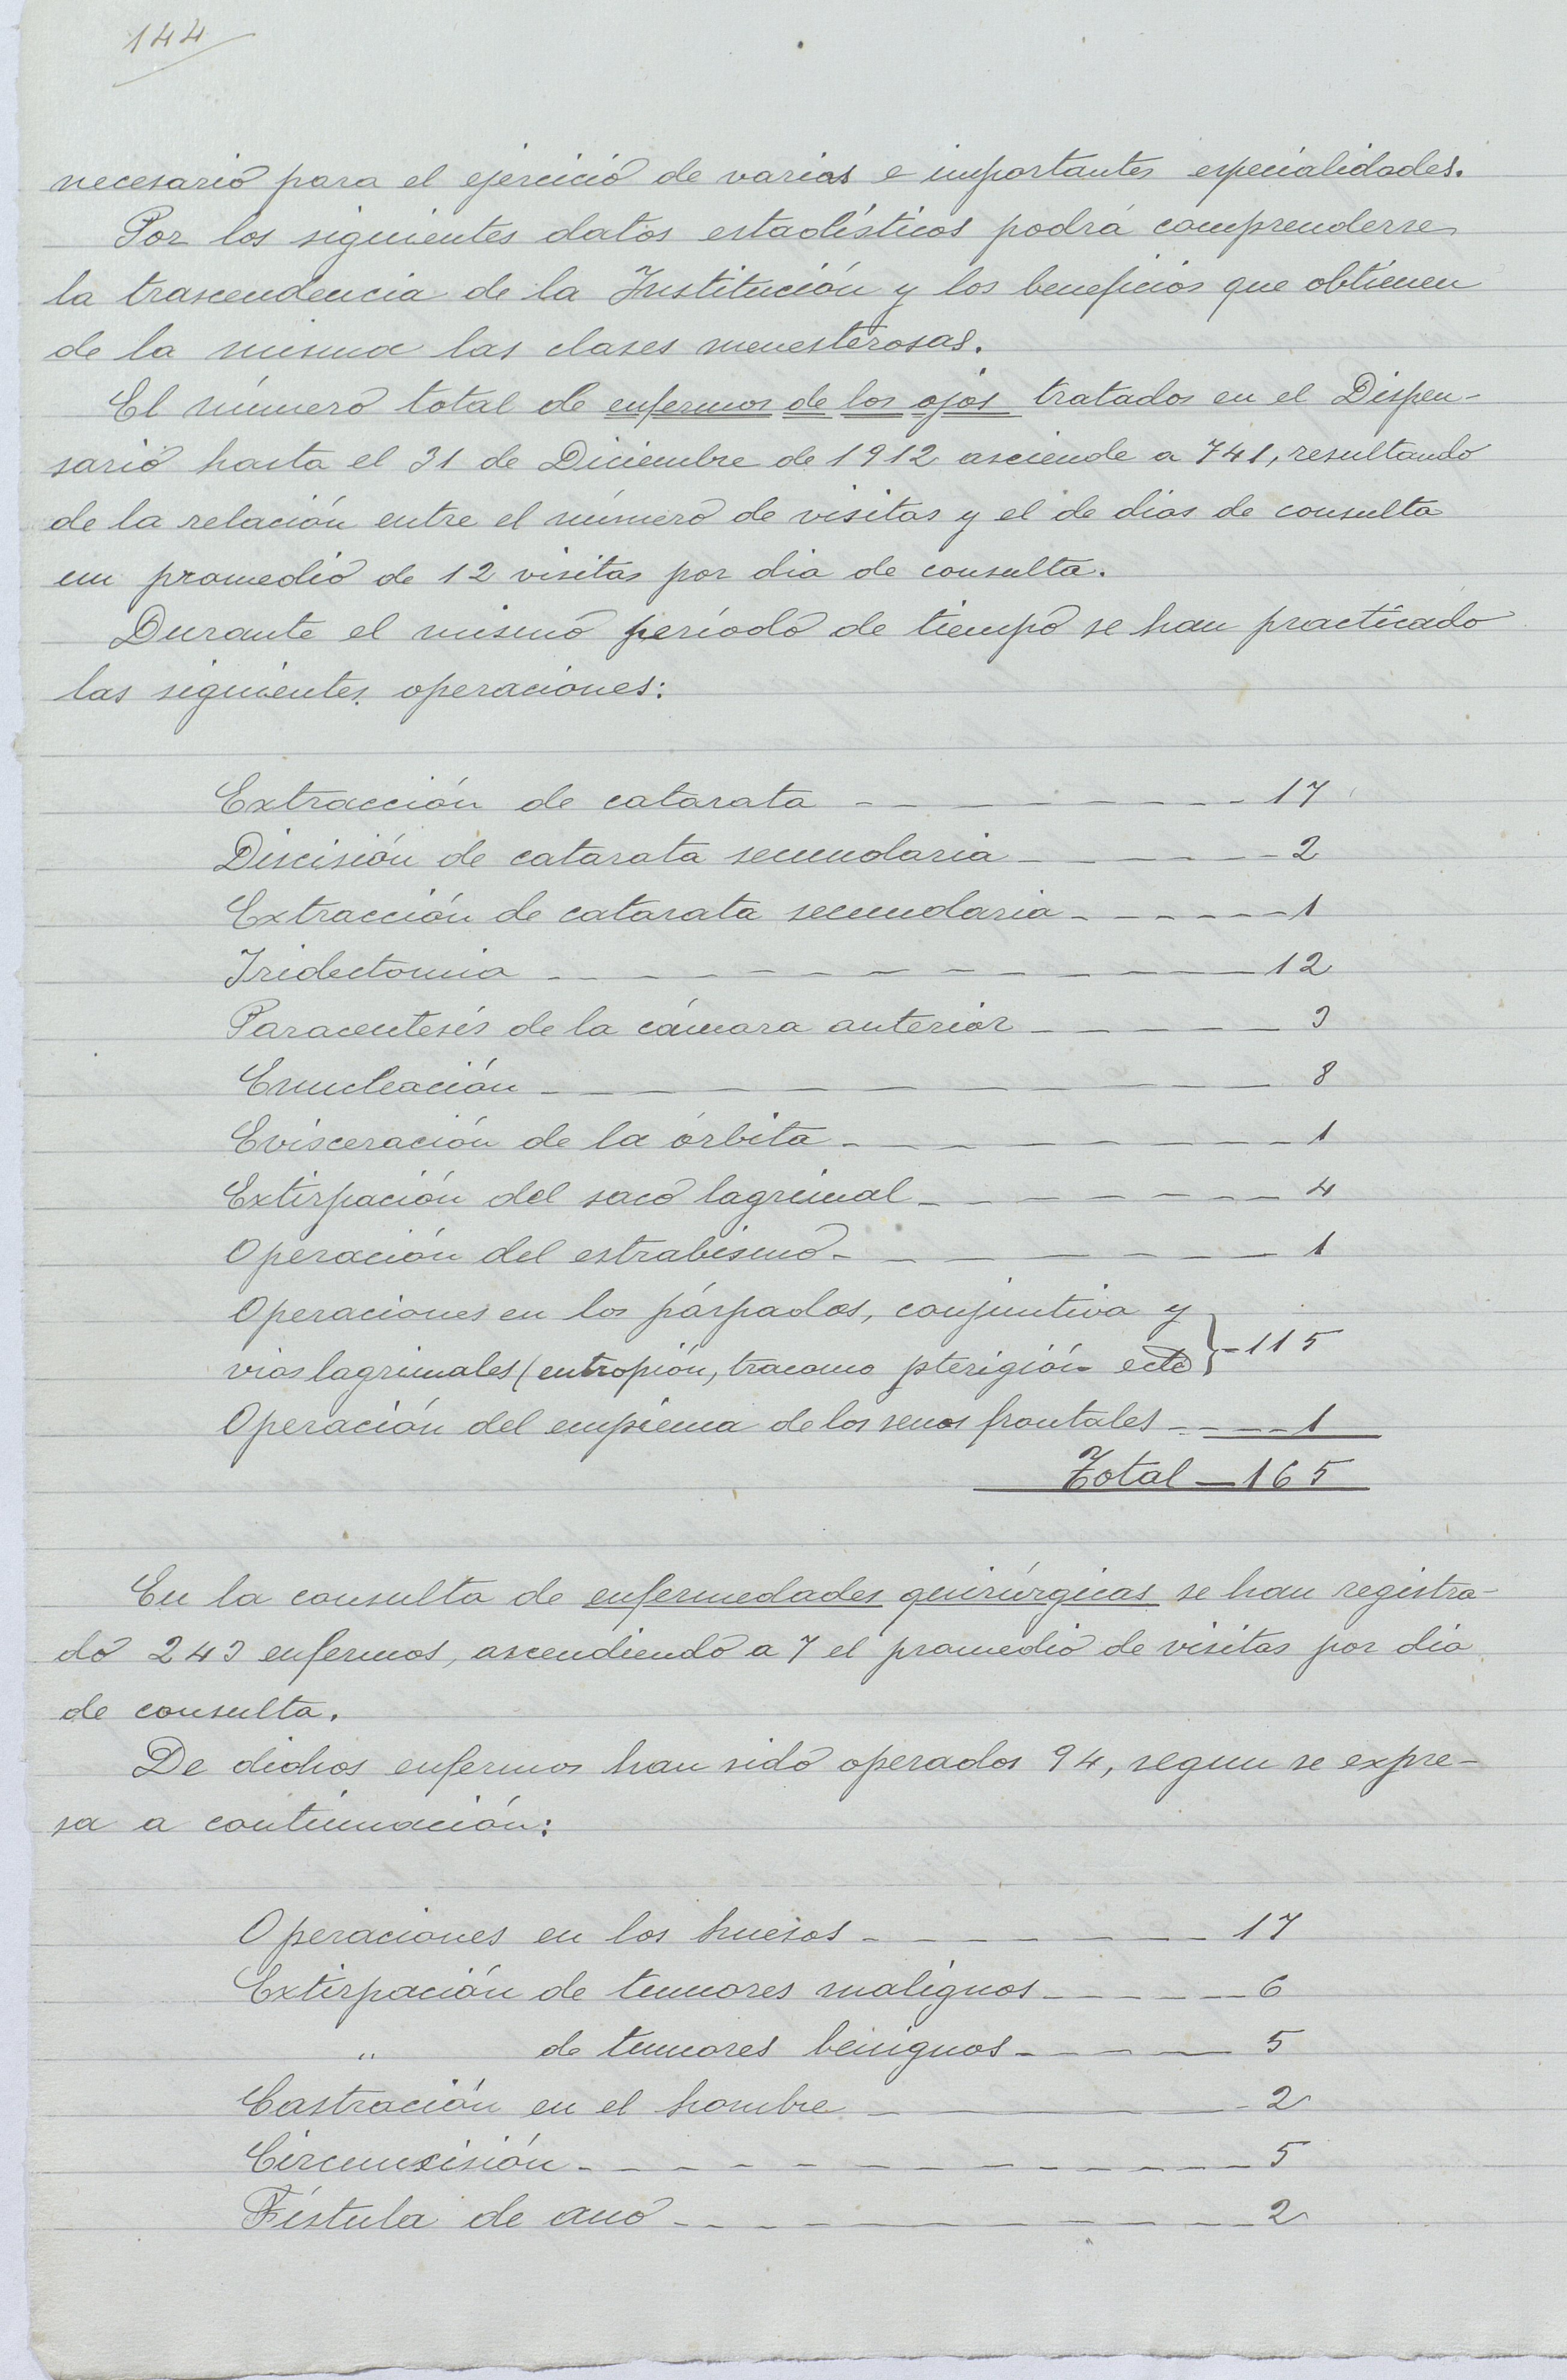 144
necesario para el ejercicio de varias e importantes especialidades.
Por los siguientes datos estadísticos podrá comprenderse
la trascendencia de la Institución y los beneficios que obtienen
de la misma las clases menesterosas.
El número total de enfermos de los ojos tratados en el Dispen-
sario hasta el 31 de Diciembre de 1912 asciende a 741, resultando
de la relación entre el número de visitas y el de dias de consulta
un promedio de 12 visitas por dia de consulta.
Durante el mismo período de tiempo se han practicado
las siguientes operaciones:
Extracción de catarata - - - - - - - - 17
Discisión de catarata secundaria - - - - - 2
Extracción de catarata secundaria - - - - - - 1
Iridectomia - - - - - - - - - - - 12
Paracentesis de la cámara anterior - - - - - 3
Enucleación - - - - - - - - - - - 8
Evisceración de la órbita - - - - - - - - 1
Extirpación del saco lagrimal - - - - - - - 4
Operación del estrabismo - - - - - - - - 1
Operaciones en los párpados, conjuntiva y
vias lagrimales (entropión, tracoma pterigión ectc) } - 115
Operación del empiema de los senos frontales - - - - 1
Total - 165
En la consulta de enfermedades quirúrgicas se han registra-
do 243 enfermos, ascendiendo a 7 el promedio de visitas por dia
de consulta.
De dichos enfermos han sido operados 94, segun se expre-
sa a continuación:
Operaciones en los huesos - - - - - - - 17
Extirpación de tumores malignos - - - - - - 6
" de tumores benignos - - - - - 5
Castración en el hombre - - - - - - - 2
Circuncisión - - - - - - - - - - - - 5
Fístula de ano - - - - - - - - - - 2